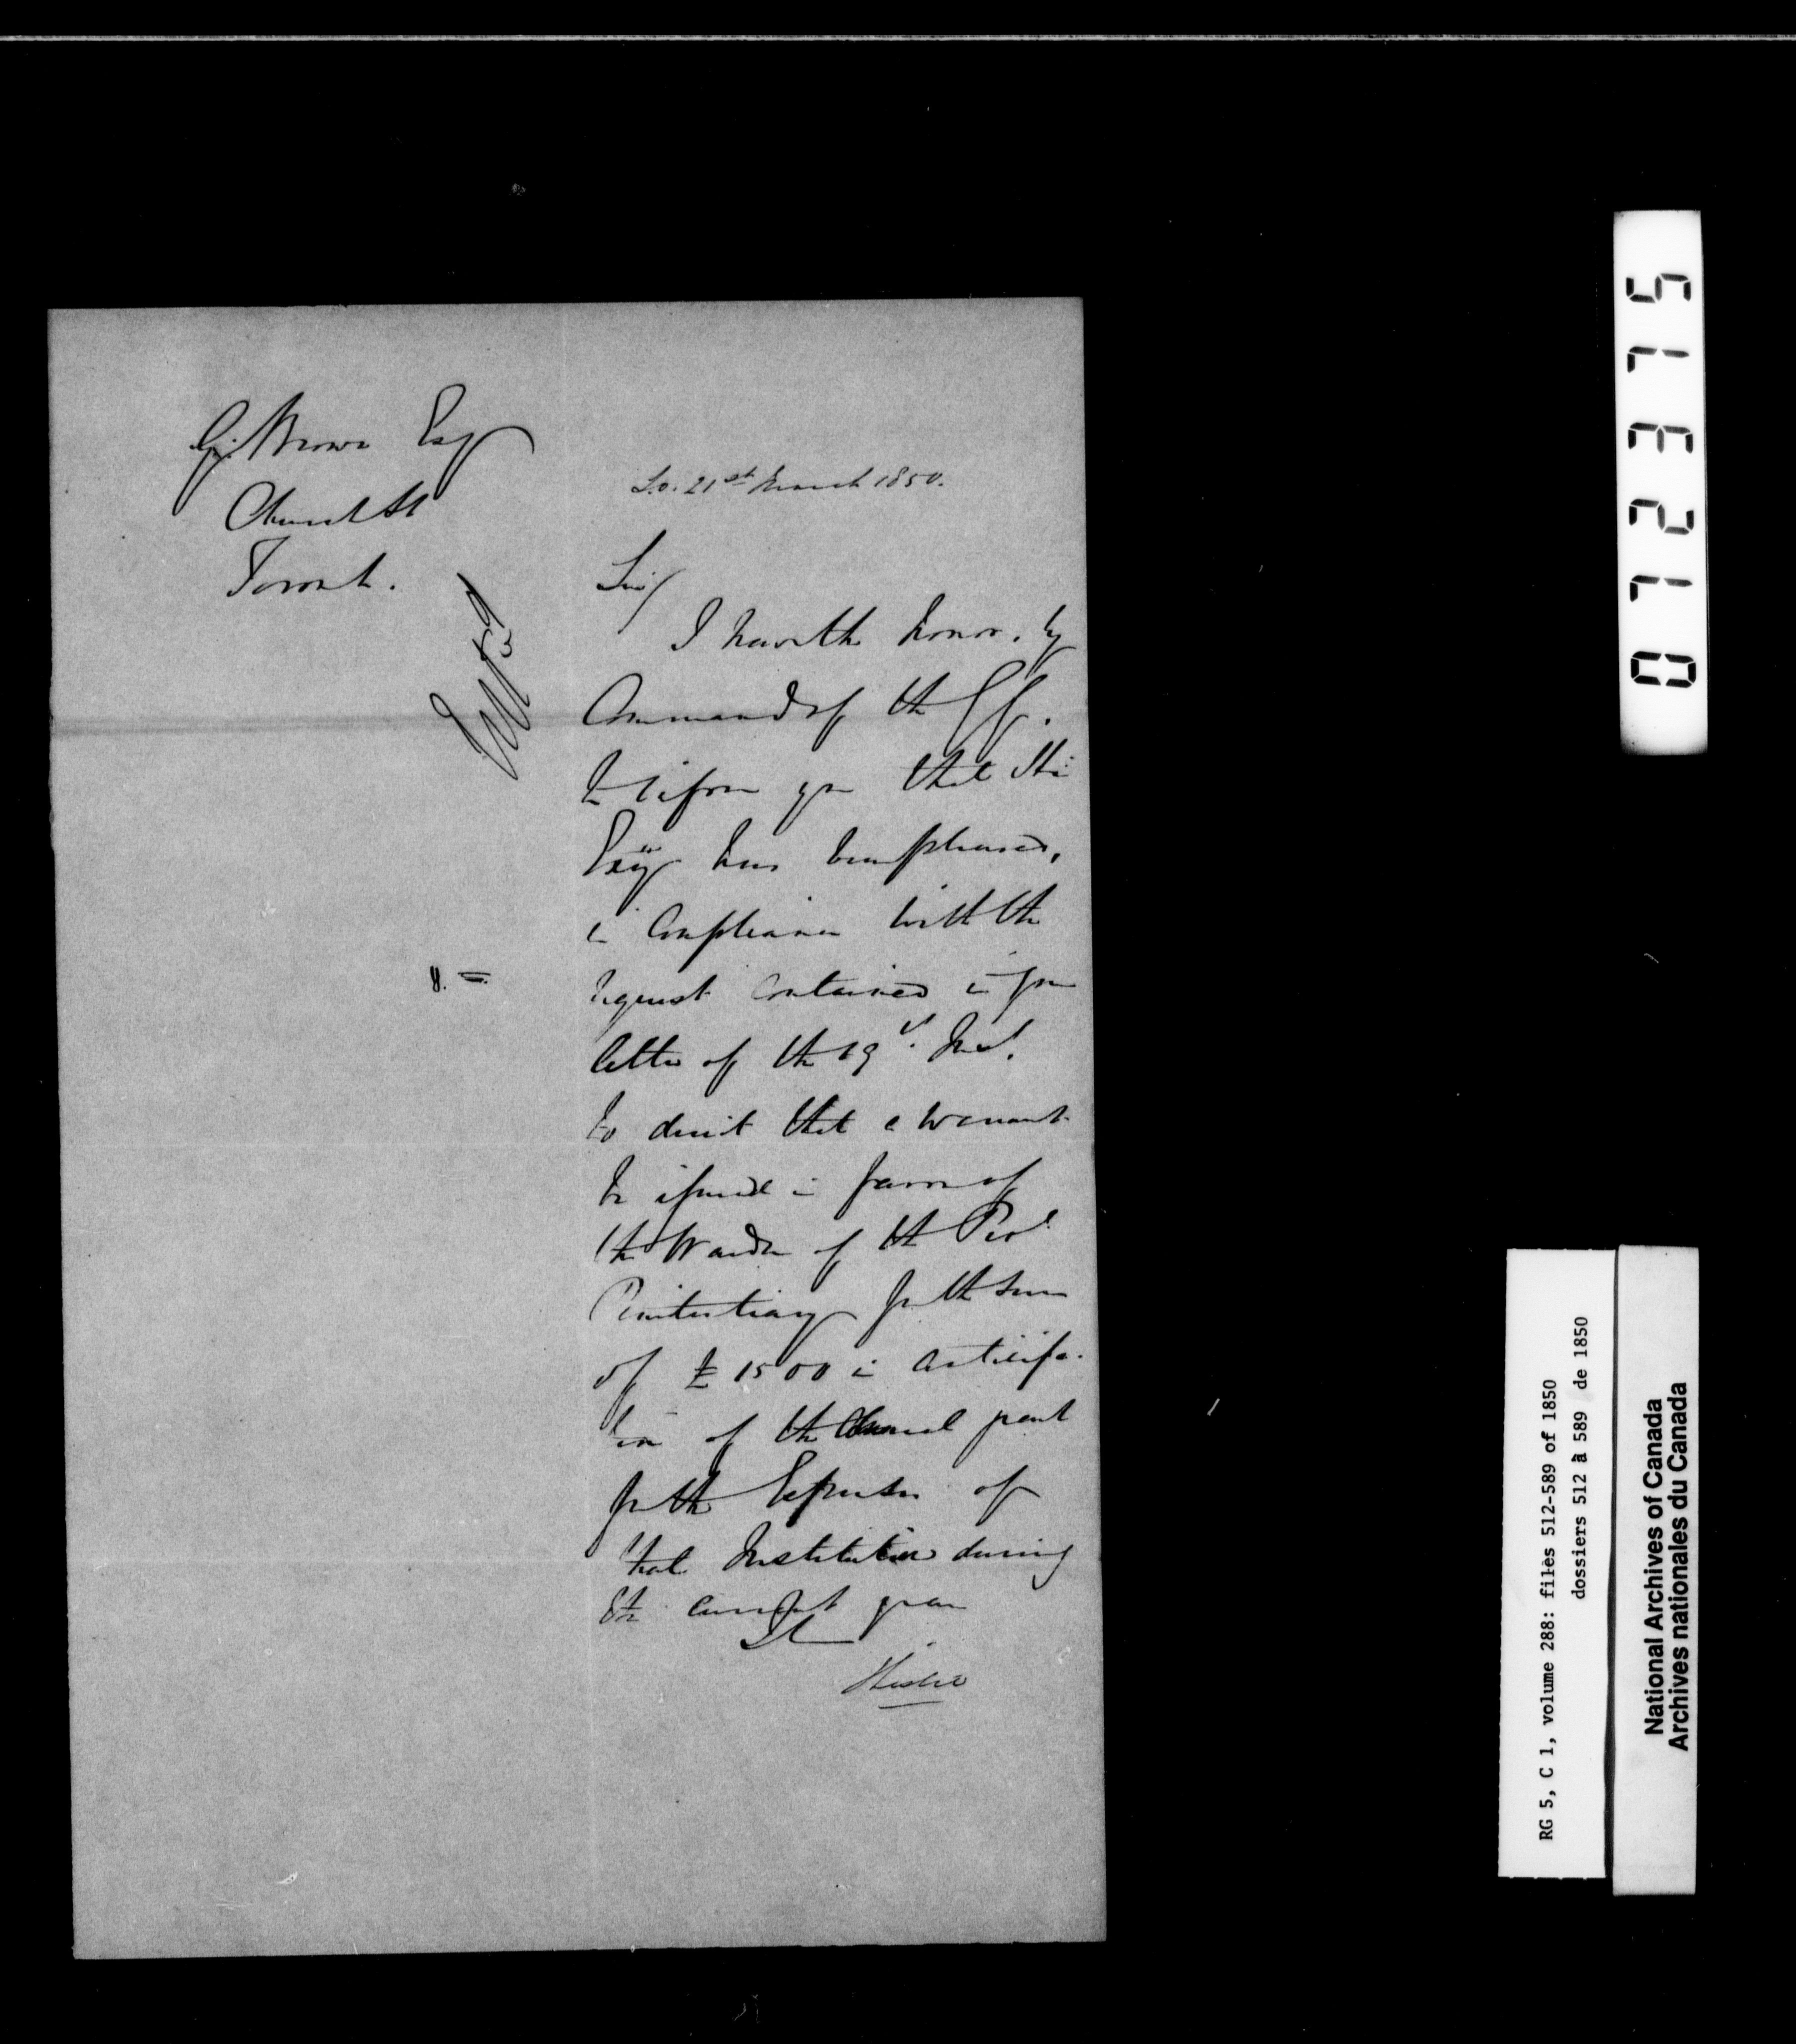 G. Brown Esq
Church St
Toronto.
S.O. 21st March 1850.
Sir/
I have the honor, by
Command of the GG.
to inform you that His
Exy has been pleased,
in Compliance with the
request contained in your
letter of the 19th. Inst.
to direct that a warrant
be issued in favor of
the Warden of the Provl
Penitentiary for the sum
of £1500 in anticipa-
tion of the Annual grant
for the Expenses of
that Institution during
the current year
I h
JLeslie
RG 5, C 1, volume 288: files 512-589 of 1850
dossiers 512 à 589 de 1850
National Archives of Canada
Archives nationales du Canada
012315